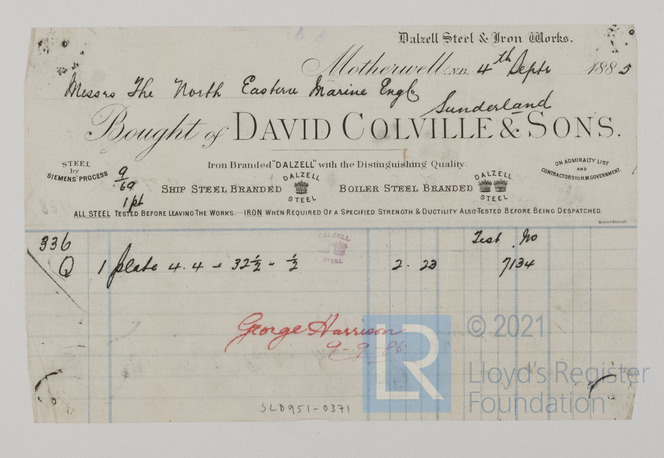 Dalzell Steel & Iron Works.
Motherwell N.B. 4th Septr 188
Messrs The North Eastern Marine Engg
Sunderland
Bought of DAVID COLVILLE & SONS.
Iron Branded "DALZELL" with the Distinguishing Quality.
STEEL
by
SIEMENS' PROCESS
9/69
1 pt
SHIP STEEL BRANDED
DALZELL
STEEL
BOILER STEEL BRANDED
DALZELL
STEEL
ON ADMIRALTY LIST
AND
CONTRACTORS TO H.M. GOVERNMENT.
ALL STEEL TESTED BEFORE LEAVING THE WORKS. IRON WHEN REQUIRED OF A SPECIFIED STRENGTH & DUCTILITY ALSO TESTED BEFORE BEING DESPATCHED.
336
DALZELL
STEEL
Test No
Q 1 plate 4.4 - 32½ - ½ 2. 23 7134
George Harrison
© 2021
LR
Lloyd's Register
Foundation
SLD951-0371